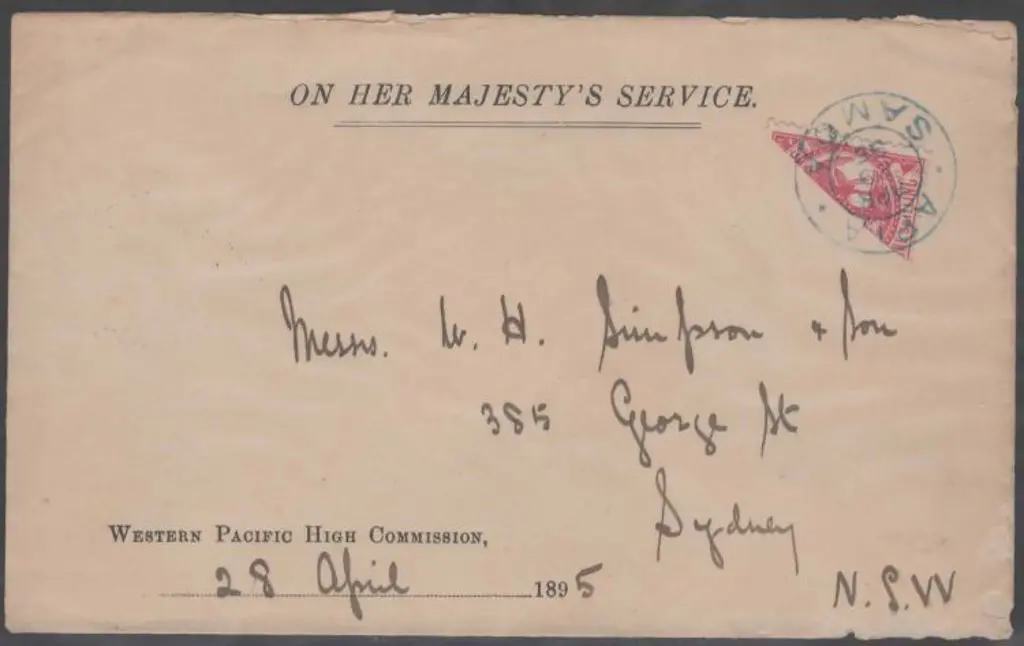 ON HER MAJESTY'S SERVICE.
SAMOA
Messrs. W. H. Simpson & Son
385 George St
Sydney
WESTERN PACIFIC HIGH COMMISSION,
28 April 1895
N.S.W